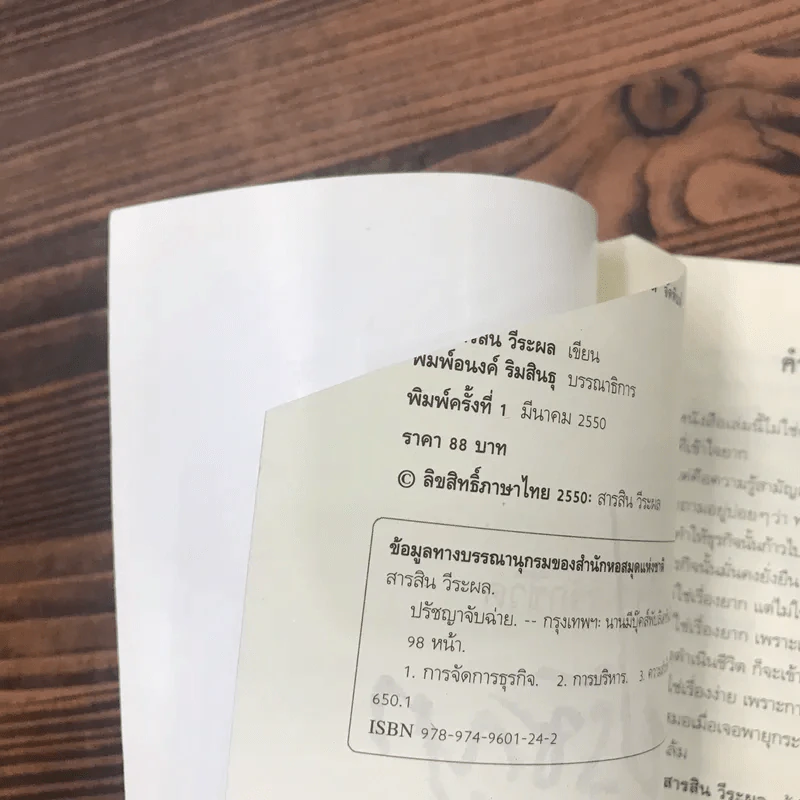 วีระผล เขียน
พิมพ์อนงค์ ริมสินธุ บรรณาธิการ
พิมพ์ครั้งที่ 1 มีนาคม 2550
ราคา 88 บาท
© ลิขสิทธิ์ภาษาไทย 2550: สารสิน วีระผล
ข้อมูลทางบรรณานุกรมของสำนักหอสมุดแห่งชาติ
สารสิน วีระผล.
ปรัชญาจับฉ่าย. -- กรุงเทพฯ: นานมีบุ๊คส์พับลิเคชั่นส์
98 หน้า.
1. การจัดการธุรกิจ. 2. การบริหาร. 3.
650.1
ISBN 978-974-9601-24-2
หนังสือเล่มนี้ไม่ใช่
ที่เข้าใจยาก
คือความรู้สามัญ
ถามอยู่บ่อยๆว่า
ทำให้ธุรกิจนั้นก้าวไป
ธุรกิจนั้นมั่นคงยั่งยืน
ใช่เรื่องยาก แต่ไม่
ใช่เรื่องยาก เพราะ
ดำเนินชีวิต ก็จะเข้า
ใช่เรื่องง่าย เพราะการ
เมื่อเจอพายุกระ
ล้ม
สารสิน วีระผล